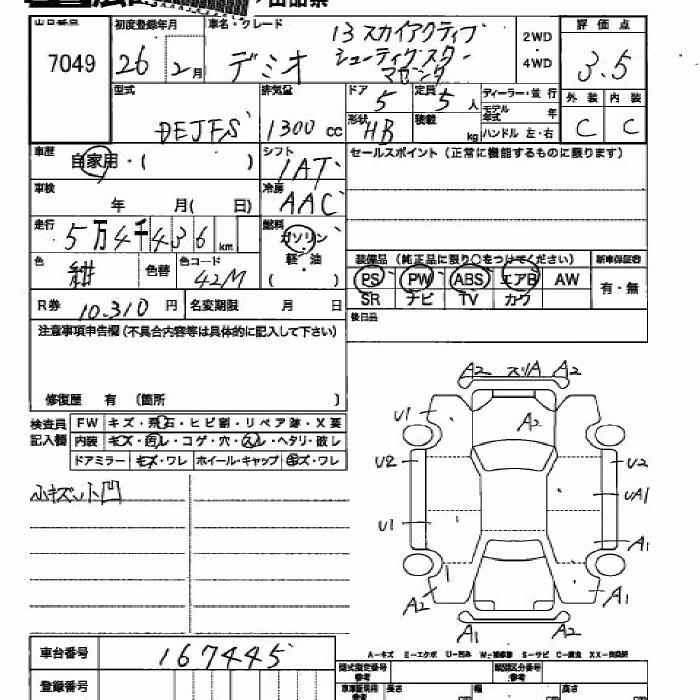 7049
初度登録年月
26 2月
車名・グレード
デミオ
13 スカイアクティブ
シューティグスター
2WD
・
4WD
評価点
3.5
外装 内装
C C
型式
DEJFS
排気量
1300 cc
ドア
5
定員
5人
形状
HB
積載
kg
ディーラー・並行
モデル年式 年
ハンドル 左・右
車歴
自家用・( )
シフト
IAT
セールスポイント(正常に機能するものに限ります)
車検
年 月( 日)
冷房
AAC
走行
5万4千436 km
燃料
ガソリン
軽・油
( )
色
紺
色替
色コード
42M
装備品(純正品に限り○をつけてください)
新車保証書
PS PW ABS エアB AW
SR ナビ TV カワ
有・無
R券 10.310 円
名変期限 月 日
後日品
注意事項申告欄(不具合内容等は具体的に記入して下さい)
修復歴 有 〔箇所 〕
検査員
記入欄
FW キズ・飛石・ヒビ割・リペア跡・X要
内装 キズ・汚レ・コゲ・穴・スレ・ヘタリ・破レ
ドアミラー キズ・ワレ ホイール・キャップ キズ・ワレ
小キズ小凹
A2 スリA A2
U1
A2
U2 U2
UA1
U1
A1
A2 A1
A1 A2
A-キズ E-エクボ U-凹み W-補修跡 S-サビ C-腐食 XX-交換済
車台番号
167445
登録番号
型式指定番号
類別区分番号
長さ 幅 高さ